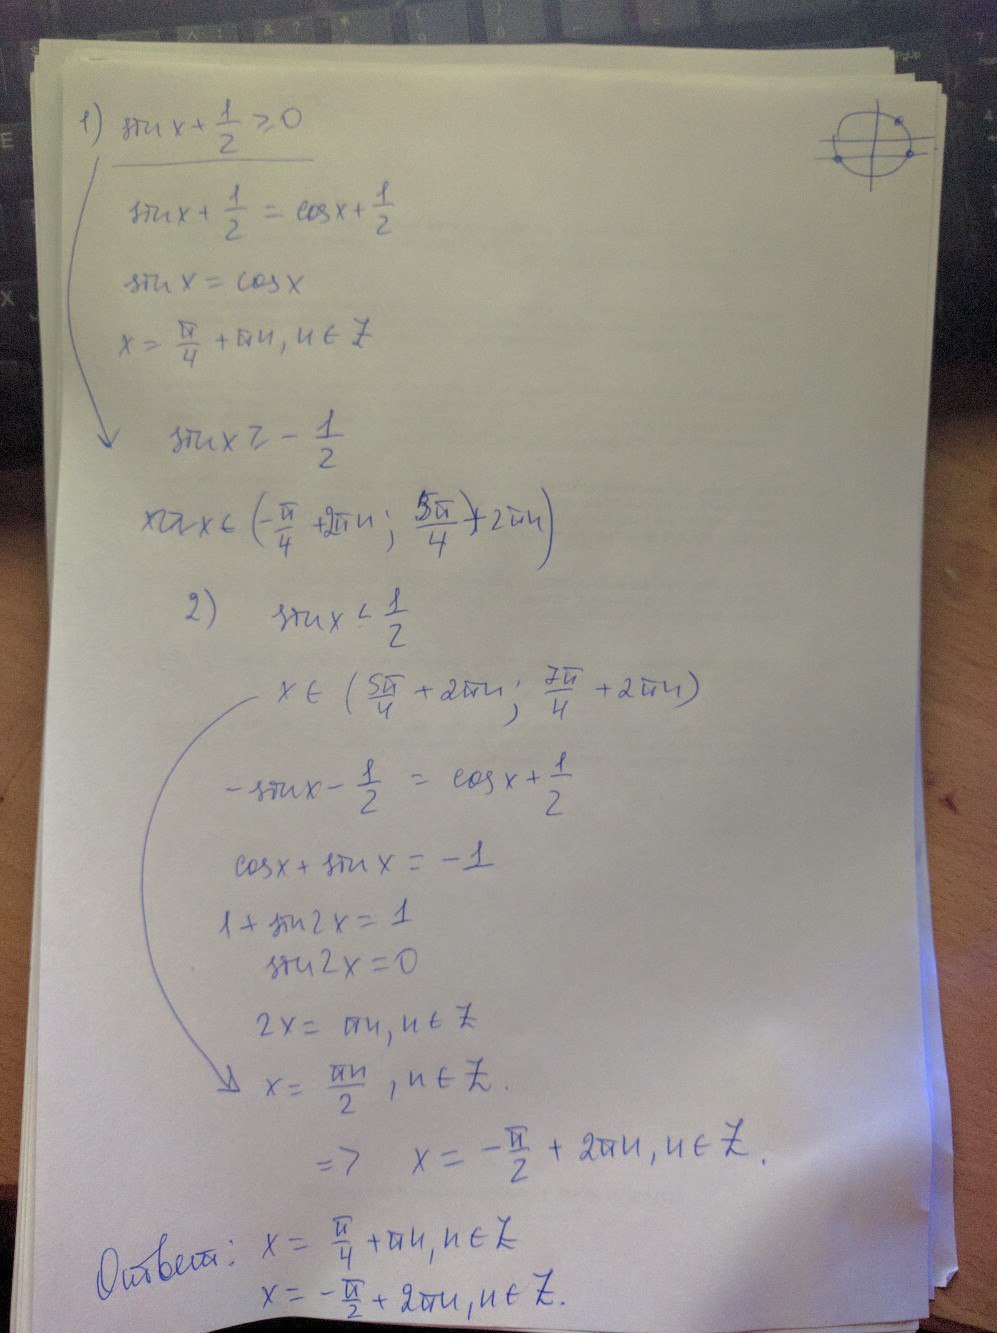 1) sin x + 1/2 ≥ 0
sin x + 1/2 = cos x + 1/2
sin x = cos x
x = π/4 + πn, n ∈ Z
sin x ≥ - 1/2
x ∈ (-π/4 + 2πn ; 5π/4 + 2πn)
2) sin x < 1/2
x ∈ (5π/4 + 2πn ; 7π/4 + 2πn)
- sin x - 1/2 = cos x + 1/2
cos x + sin x = -1
1 + sin 2x = 1
sin 2x = 0
2x = πn, n ∈ Z
x = πn/2 , n ∈ Z.
=> x = -π/2 + 2πn, n ∈ Z.
Ответ: x = π/4 + πn, n ∈ Z
x = -π/2 + 2πn, n ∈ Z.